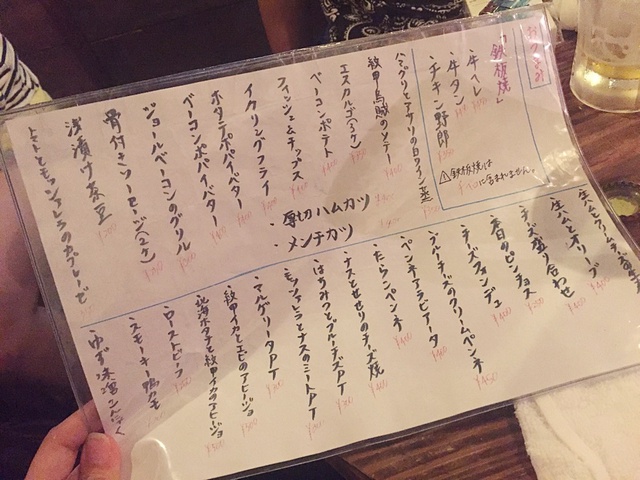 おつまみ
「鉄板焼」
・牛ヘレ
・牛タン
・チキン野郎
⚠鉄板焼は
に含まれません。
ハマグリとアサリの白ワイン蒸
紋甲烏賊のソテー
エスカルゴ(3ヶ)
ベーコンポテト
フィッシュ&チップス
イカリングフライ
ホタテポパイバター
ベーコンポパイバター
ジョールベーコンのグリル
骨付きソーセージ(2ヶ)
浅漬け茶豆
トマトとモッツァレラのカプレーゼ
・厚切ハムカツ
・メンチカツ
生ハムとオリーブ
チーズ盛り合わせ
春日のピンチョス
チーズフォンデュ
ブルーチーズのクリームペンネ ¥450
ペンネアラビアータ
たらこペンネ
ナスとせせりのチーズ焼
はちみつとブルーチーズPT
モッツァレラとナスのミートPT
マルゲリータPT
紋甲イカとエビのアヒージョ
北海ホタテと紋甲イカのアヒージョ
ローストビーフ
スモーキー鴨タモ
ゆず味噌こんにゃく